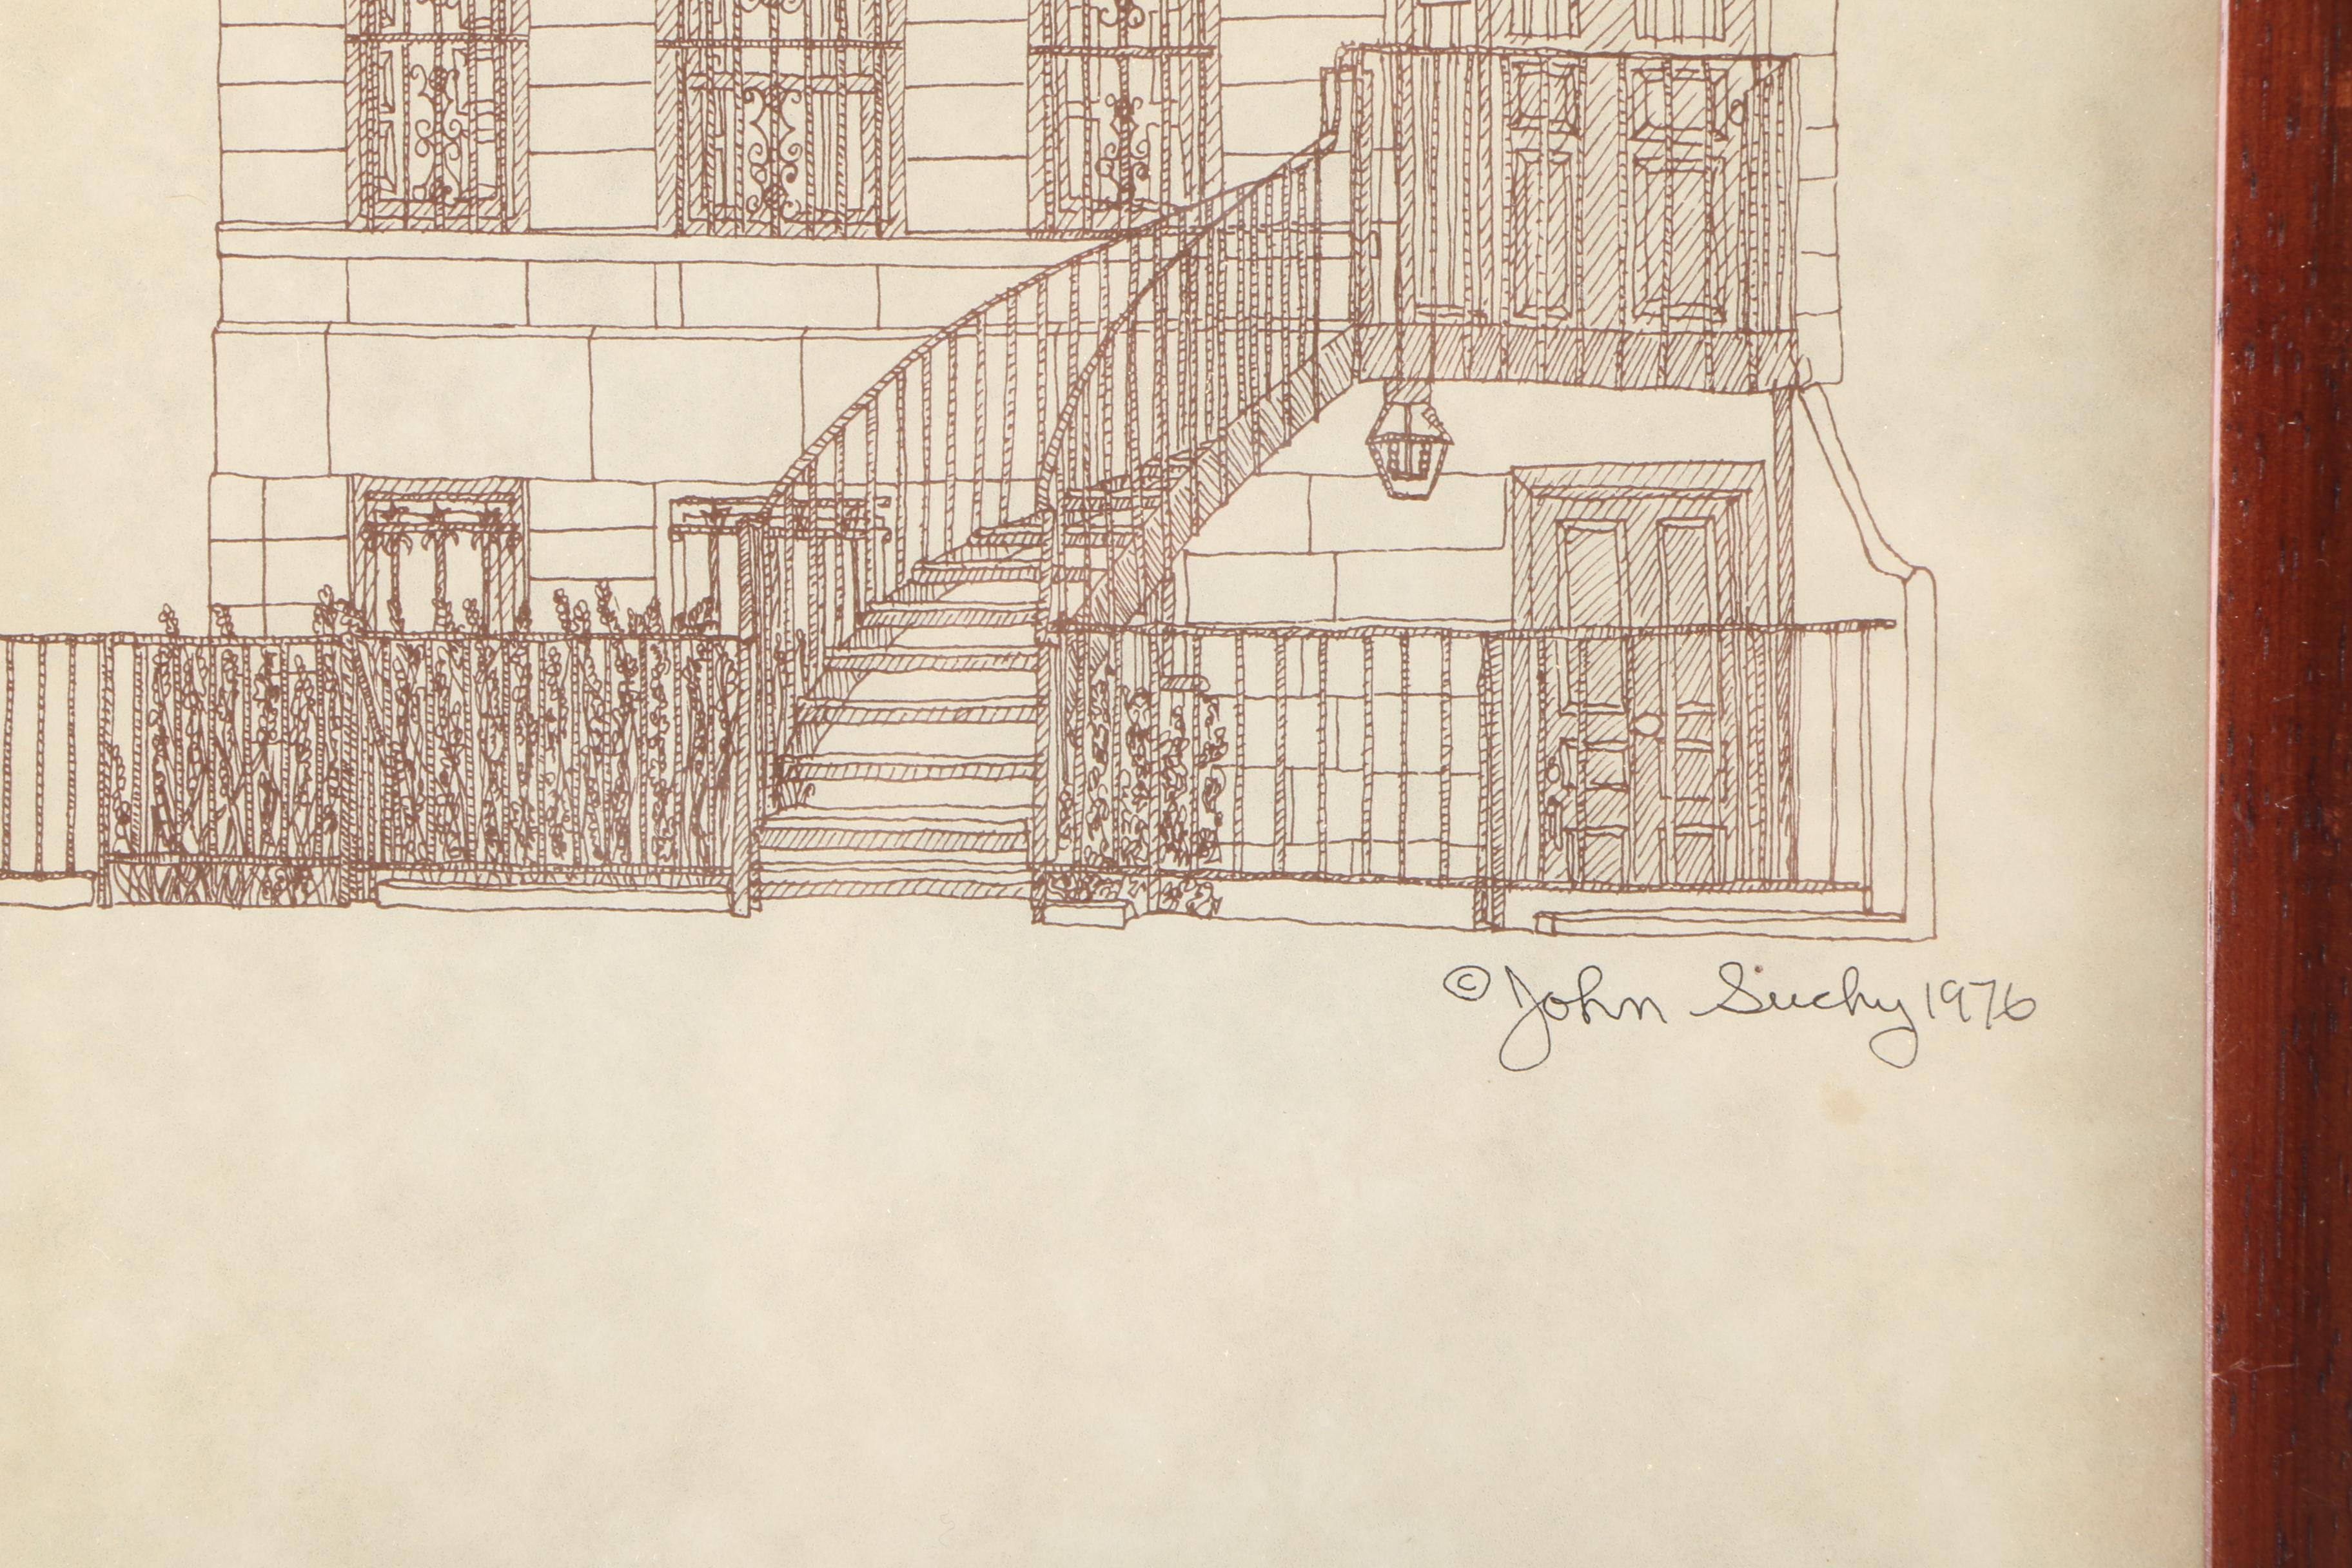 © John Suchy 1976